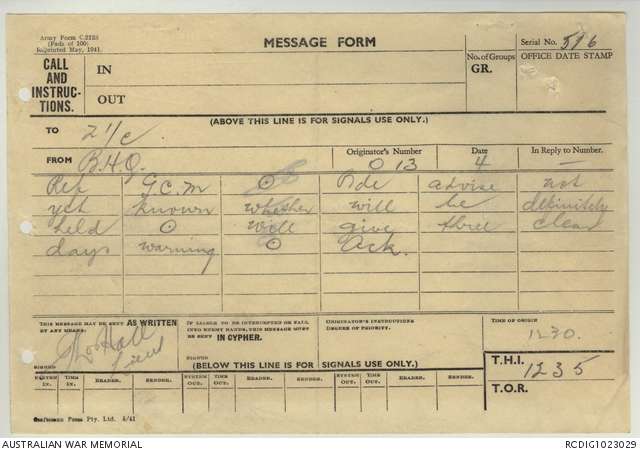 Army Form C.2128
(Pads of 100)
Reprinted May, 1941.
MESSAGE FORM
Serial No. 596
CALL AND INSTRUC-TIONS.
IN
OUT
No. of Groups
GR.
OFFICE DATE STAMP
(ABOVE THIS LINE IS FOR SIGNALS USE ONLY.)
TO 2 i/c
FROM B.H.Q.
Originator's Number 013
Date 4
In Reply to Number. —
Ref G.C.M ⊙ Bde advise not
yet known whether will be definitely
held ⊙ will give three clear
days warning ⊙ Ack.
THIS MESSAGE MAY BE SENT AS WRITTEN
BY ANY MEANS.
SIGNED Hall Lieut
IF LIABLE TO BE INTERCEPTED OR FALL
INTO ENEMY HANDS, THIS MESSAGE MUST
BE SENT IN CYPHER.
SIGNED
ORIGINATOR'S INSTRUCTIONS
DEGREE OF PRIORITY.
TIME OF ORIGIN
1230.
(BELOW THIS LINE IS FOR SIGNALS USE ONLY.)
T.H.I. 1235
SYSTEM IN. TIME IN. READER. SENDER. SYSTEM OUT. TIME OUT. READER. SENDER. SYSTEM OUT. TIME OUT. READER. SENDER.
T.O.R.
Craftsman Press Pty. Ltd. 6/41
AUSTRALIAN WAR MEMORIAL
RCDIG1023029